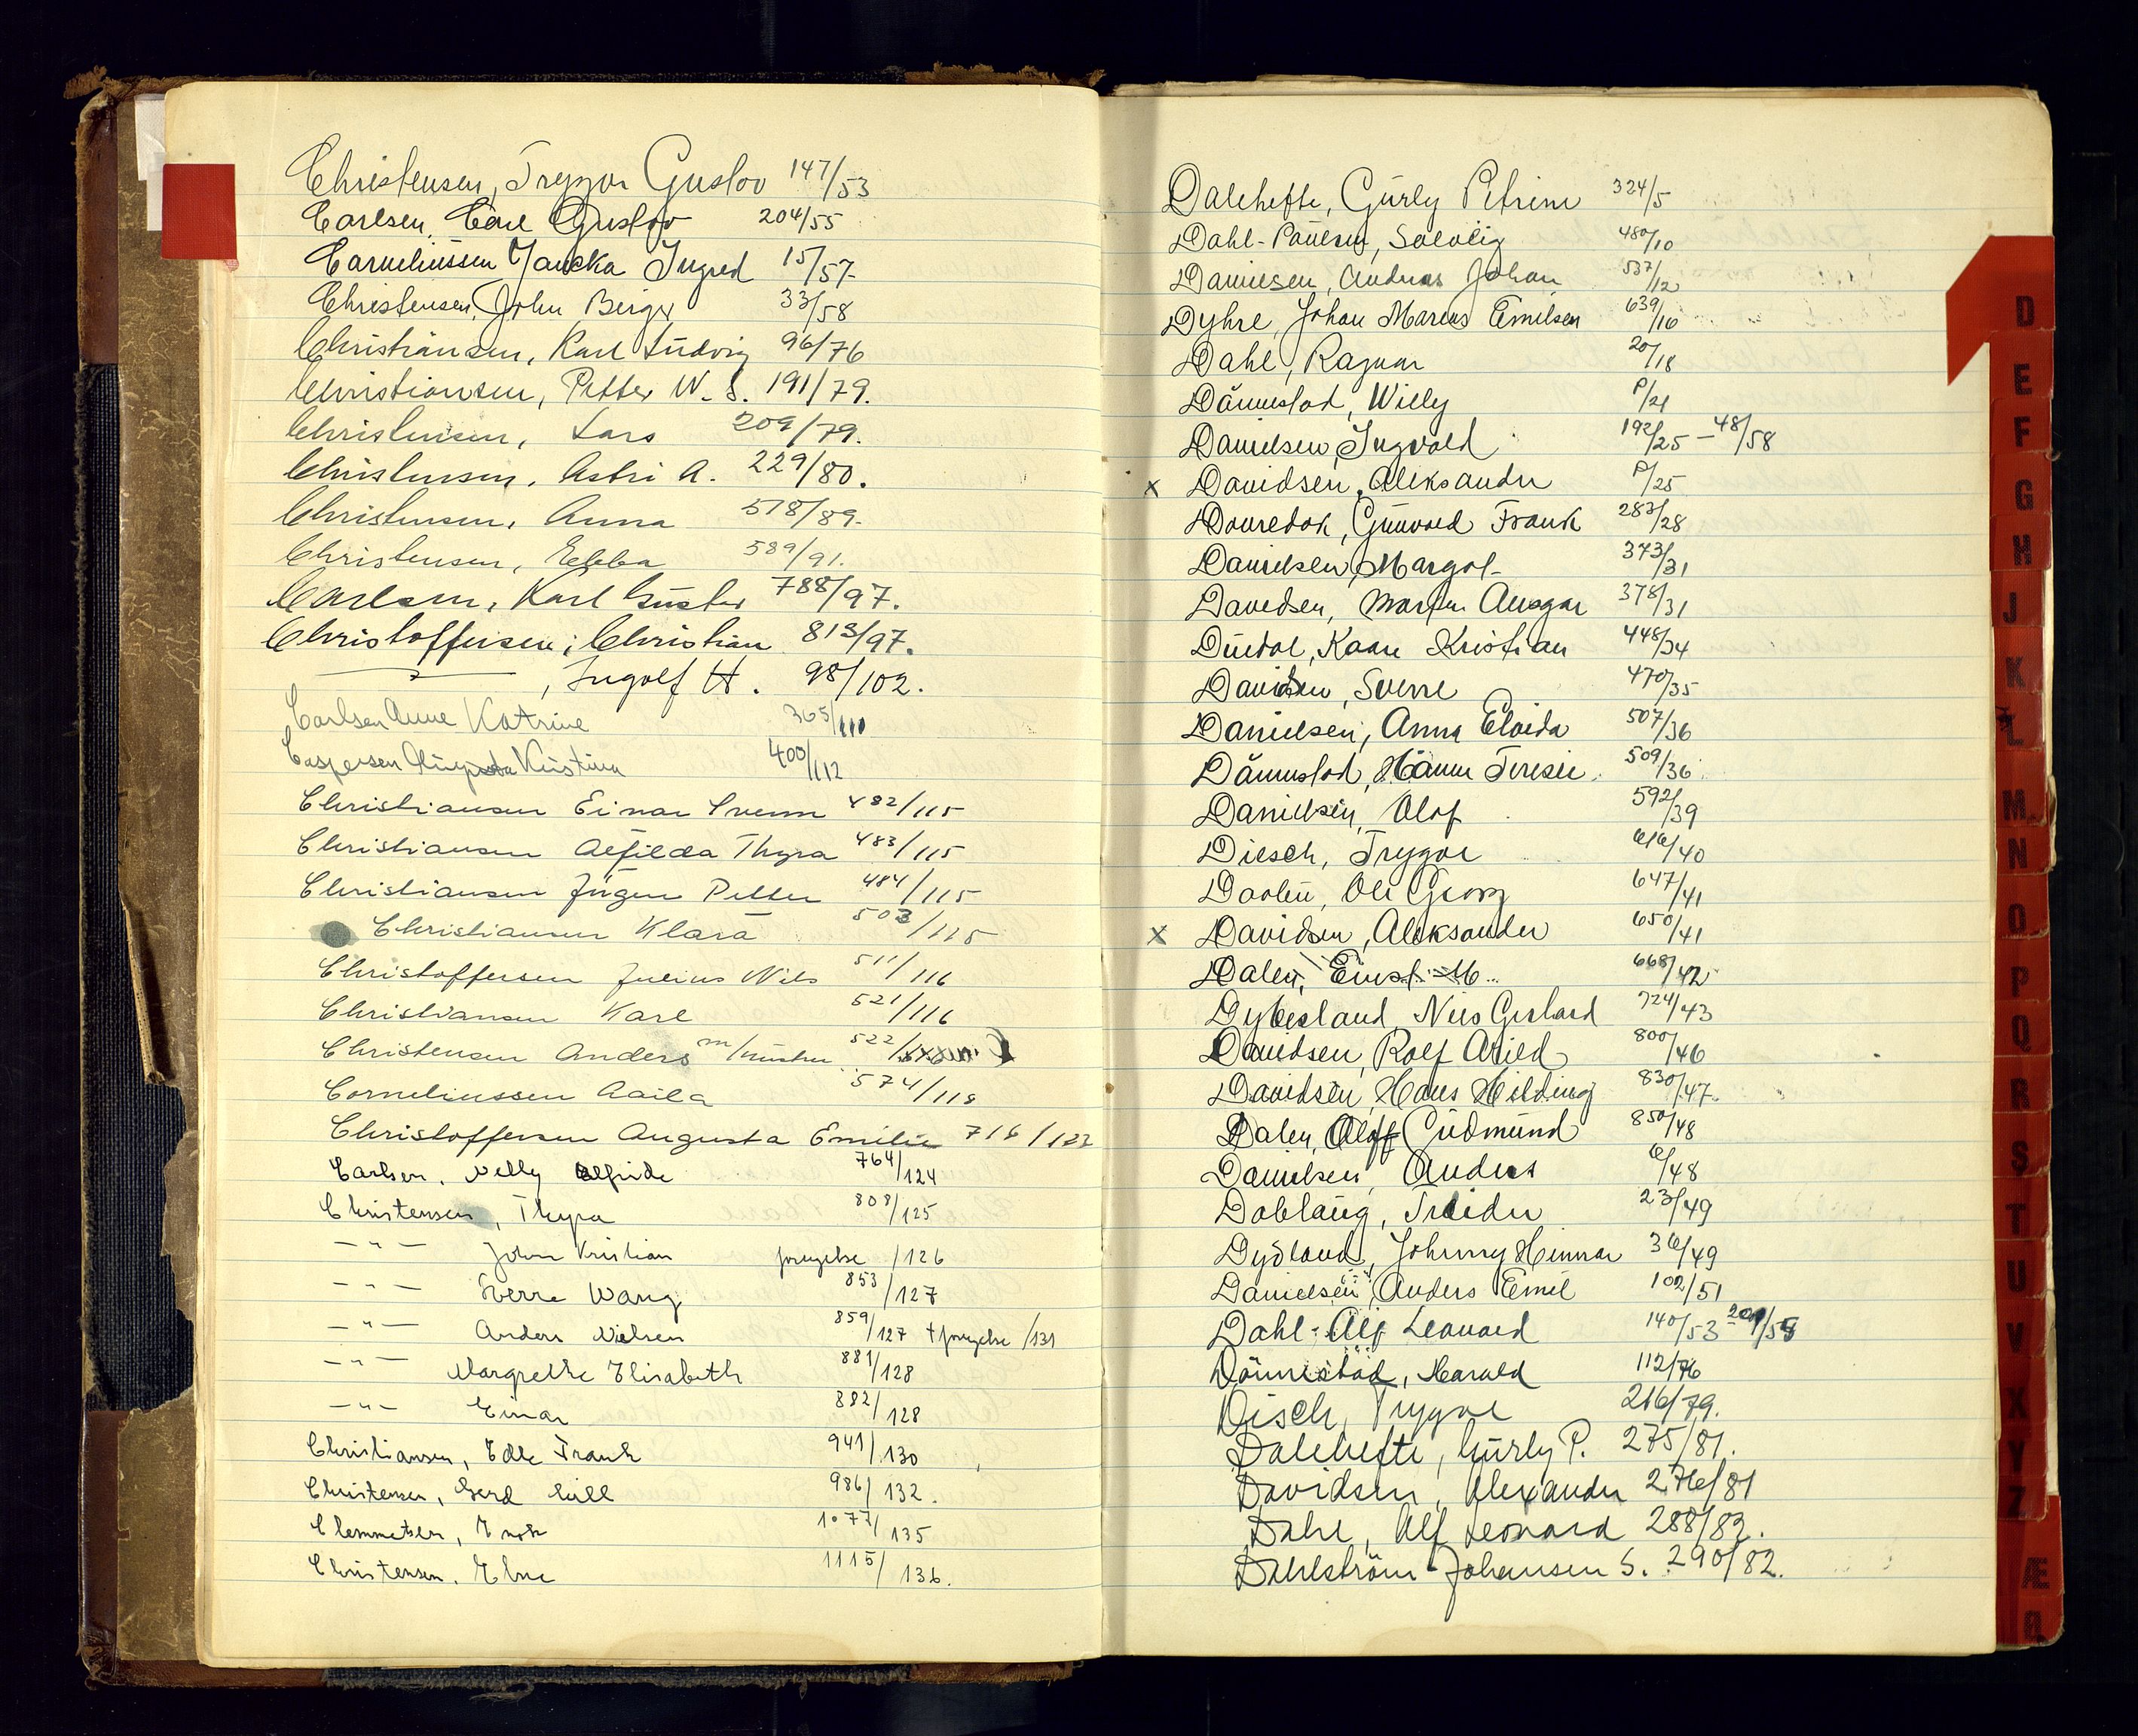 Christensen, Trygve Gustav 147/53
Carlsen, Carl Gustav 204/55
Corneliussen Jancka Ingrid 15/57
Christensen, John Birger 33/58
Christiansen, Karl Ludvig 96/76
Christiansen, Petter W. S. 191/79.
Christensen, Lars 209/79.
Christensen, Astri A. 229/80.
Christensen, Anna 578/89.
Christensen, Ebba 589/91.
Carlsen, Karl Gustav 788/97.
Christoffersen, Christian 813/97.
—〃— , Ingolf H. 98/102.
Carlsen Anne Katrine 365/110
Caspersen Augusta Kristina 400/112
Christiansen Einar Svenn 482/115
Christiansen Alfilda Thyra 483/115
Christiansen Jürgen Petter 484/115
Christiansen Klara 503/115
Christoffersen Julius Nils 511/116
Christiansen Karl 521/116
Christensen Anders m/hustru 522/
Corneliussen Aaila 574/118
Christoffersen Augusta Emilie 716/122
Carlsen, Nelly Alfride 764/124
Christensen, Thyra 808/125
—〃— John Kristian forespørsel /126
—〃— Sverre Wang 853/127
—〃— Anders Nielsen 859/127 + /131
—〃— Margrethe Elisabeth 881/128
—〃— Einar 882/128
Christiansen, Edle Frank 941/130
Christensen, Gerd Lill 986/132.
Clemmetsen, Enok 1077/135
Christensen, Elne 1115/136.
Dalehefte, Gürly Petrine 324/5
Dahl-Paulsen, Solveig 480/10
Danielsen, Andreas Johan 537/12
Dyhre, Johan Marius Emilsen 639/16
Dahl, Ragnar 20/18
Dånnestad, Willy P/21
Danielsen, Ingvald 192/25 – 48/58
x Davidsen, Aleksander P/25
Dovredal, Gunvald Frank 283/28
Danielsen, Margot 373/31
Davidsen, Martin Ansgar 378/31
Duedal, Kaare Kristian 448/34
Davidsen, Sverre 470/35
Danielsen, Anna Elvida 507/36
Dånnestad, Hanna Teresie 509/36
Danielsen, Olaf 592/39
Diesch, Trygve 616/40
Daolen, Ole Georg 647/41
x Davidsen, Aleksander 650/41
Dalen, Einst M. 668/42
Dybesland, Nils Gerhard 724/43
Davidsen, Rolf Arild 800/46
Davidsen, Hans Hilding 830/47.
Dalen, Olaf Gudmund 850/48
Danielsen, Anders 6/48
Dablaug, Treider 23/49
Dysland, Johnny Hennar 36/49
Danielsen, Anders Emil 102/51
Dahl, Alf Leonard 140/53 – 201/55
Dånnestad, Harald 112/76
Disch, Trygve 216/79.
Dalehefte, Gürly P. 275/81.
Davidsen, Alexander 276/81
Dahl, Alf Leonard 288/82.
Dahlström-Johansen S. 290/82.
D
E
F
G
H
J
K
L
M
N
O
P
Q
R
S
T
U
V
X
Y
Z
Æ
Ø